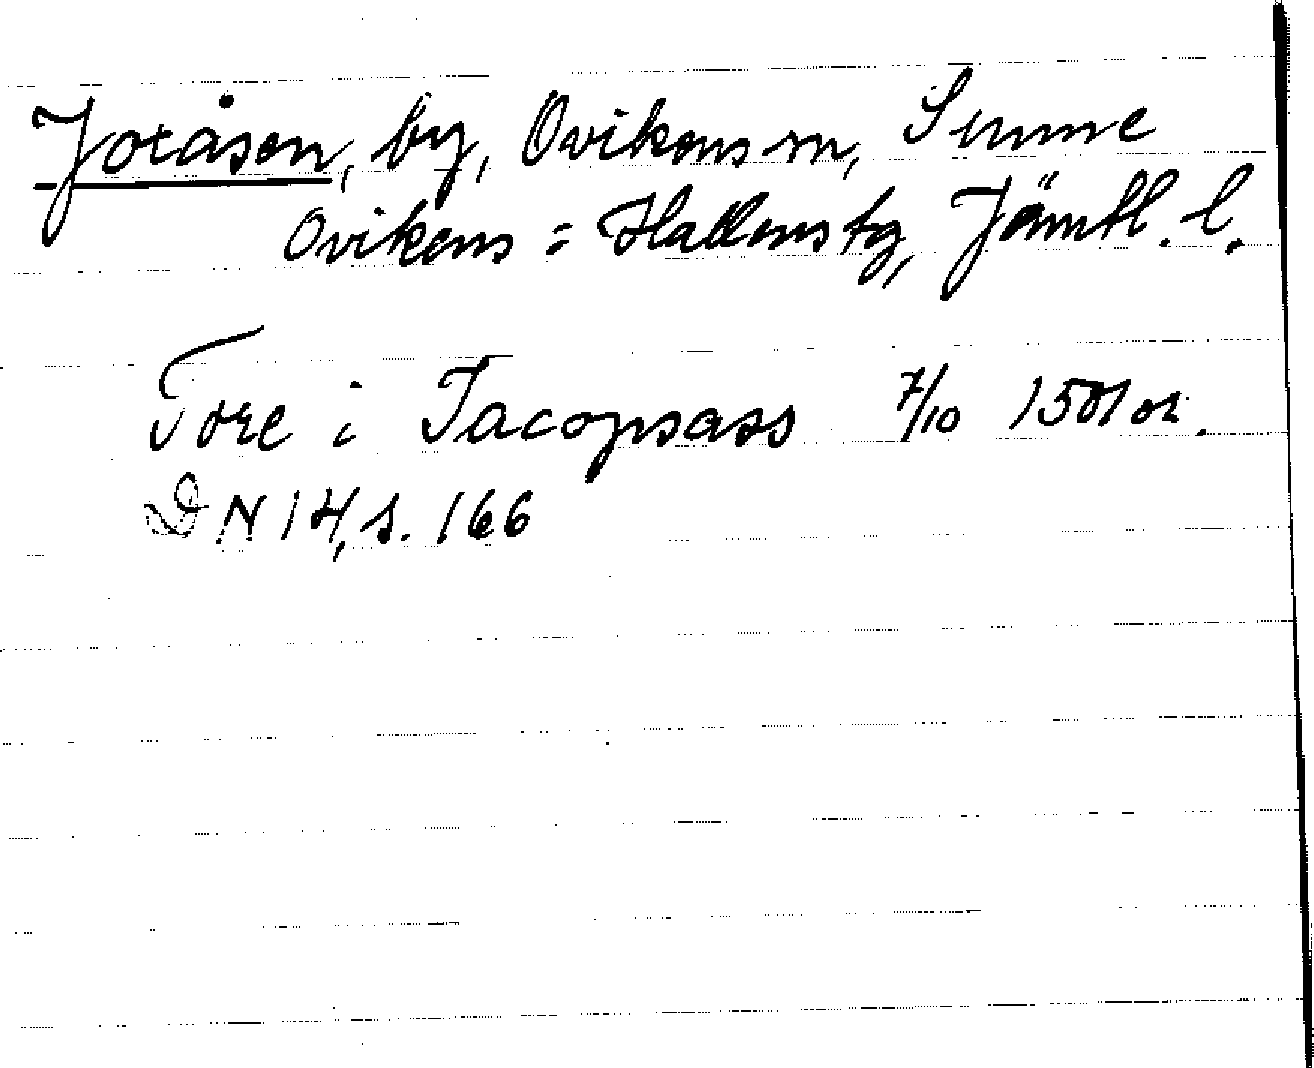 Joxåsen, by, Ovikens sn, Sunne
Ovikens = Hallens tg, Jämtl. l.
Tore i Jacopsass 7/10 1501 or.
DN 14, s. 166